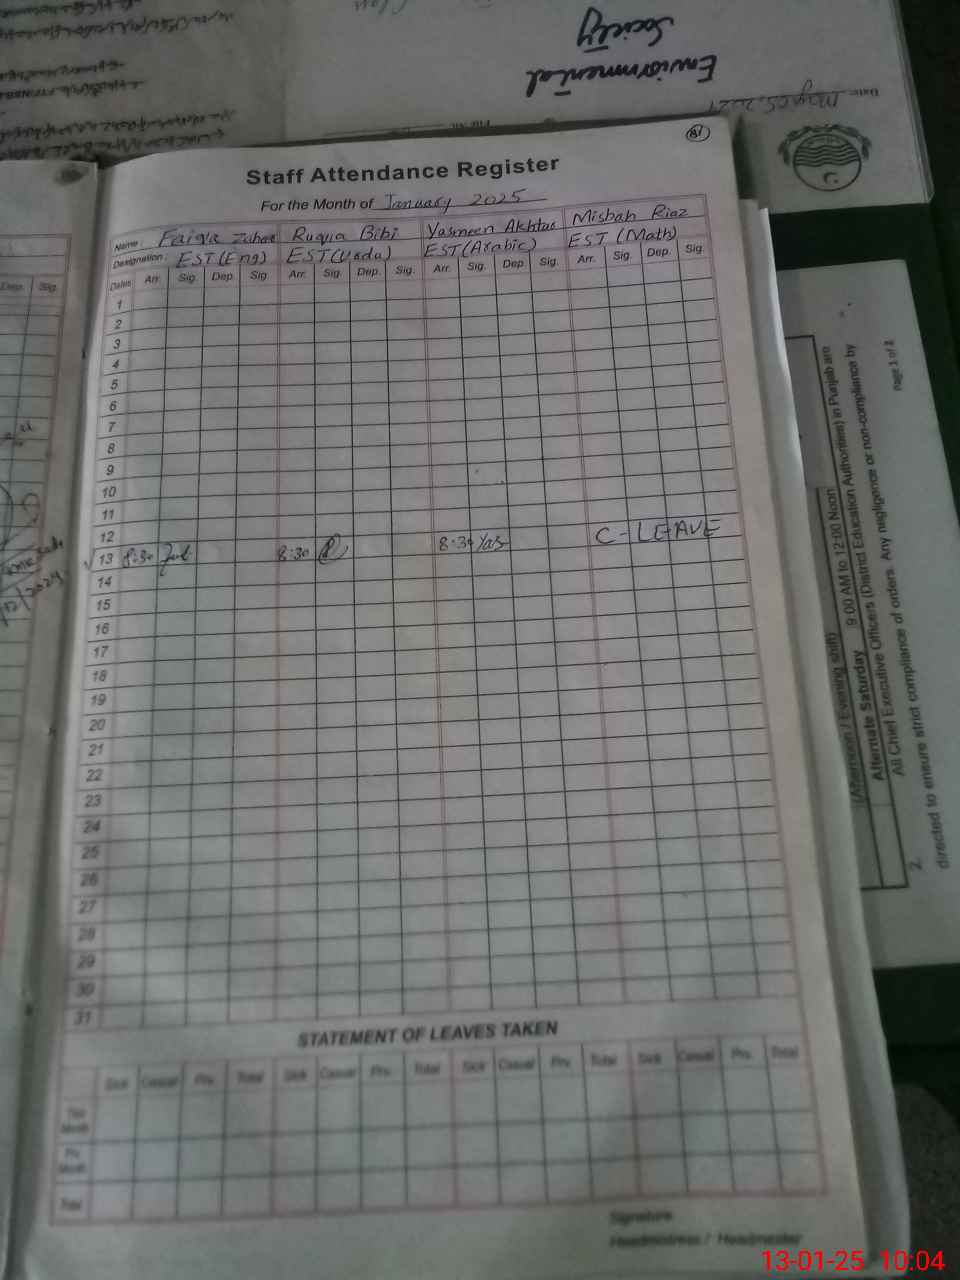 Enviornmental
Society
Date: May 05, 2021
81
Staff Attendance Register
For the Month of January 2025
Name : Faiqa Zahra Ruqia Bibi Yasmeen Akhtar Misbah Riaz
Designation : EST (Eng) EST (Urdu) EST (Arabic) EST (Math)
Dates Arr. Sig. Dep. Sig. Arr. Sig. Dep. Sig. Arr. Sig. Dep. Sig. Arr. Sig. Dep. Sig.
1
2
3
4
5
6
7
8
9
10
11
12
13 8:30 8:30 8:30 Yas C-LEAVE
14
15
16
17
18
19
20
21
22
23
24
25
26
27
28
29
30
31
STATEMENT OF LEAVES TAKEN
Sick Casual Prv. Total Sick Casual Prv. Total Sick Casual Prv. Total Sick Casual Prv. Total
This Month
Prv. Month
Total
Signature
Headmistress / Headmaster
Dep. Sig.
(Afternoon / Evening shift)
Alternate Saturday 9:00 AM to 12:00 Noon
All Chief Executive Officers (District Education Authorities) in Punjab are
2. directed to ensure strict compliance of orders. Any negligence or non-compliance by
Page 1 of 2
13-01-25 10:04